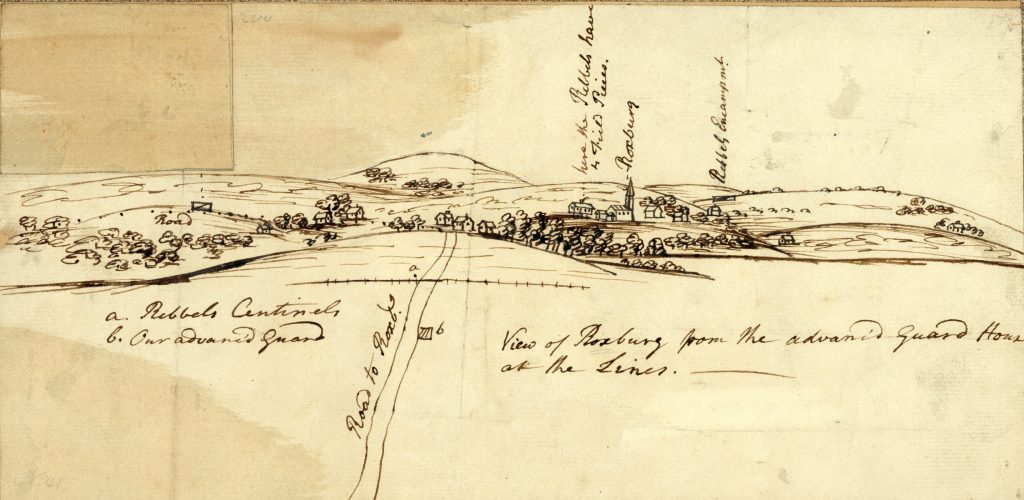 here the Rebbels have
4 Field Pieces.
Roxburg
Rebbels Encampmt.
Road
a. Rebbels Centinels
b. Our advanc'd Guard
a
b
Road to Roxb.
View of Roxburg from the advanc'd Guard House
at the Lines.